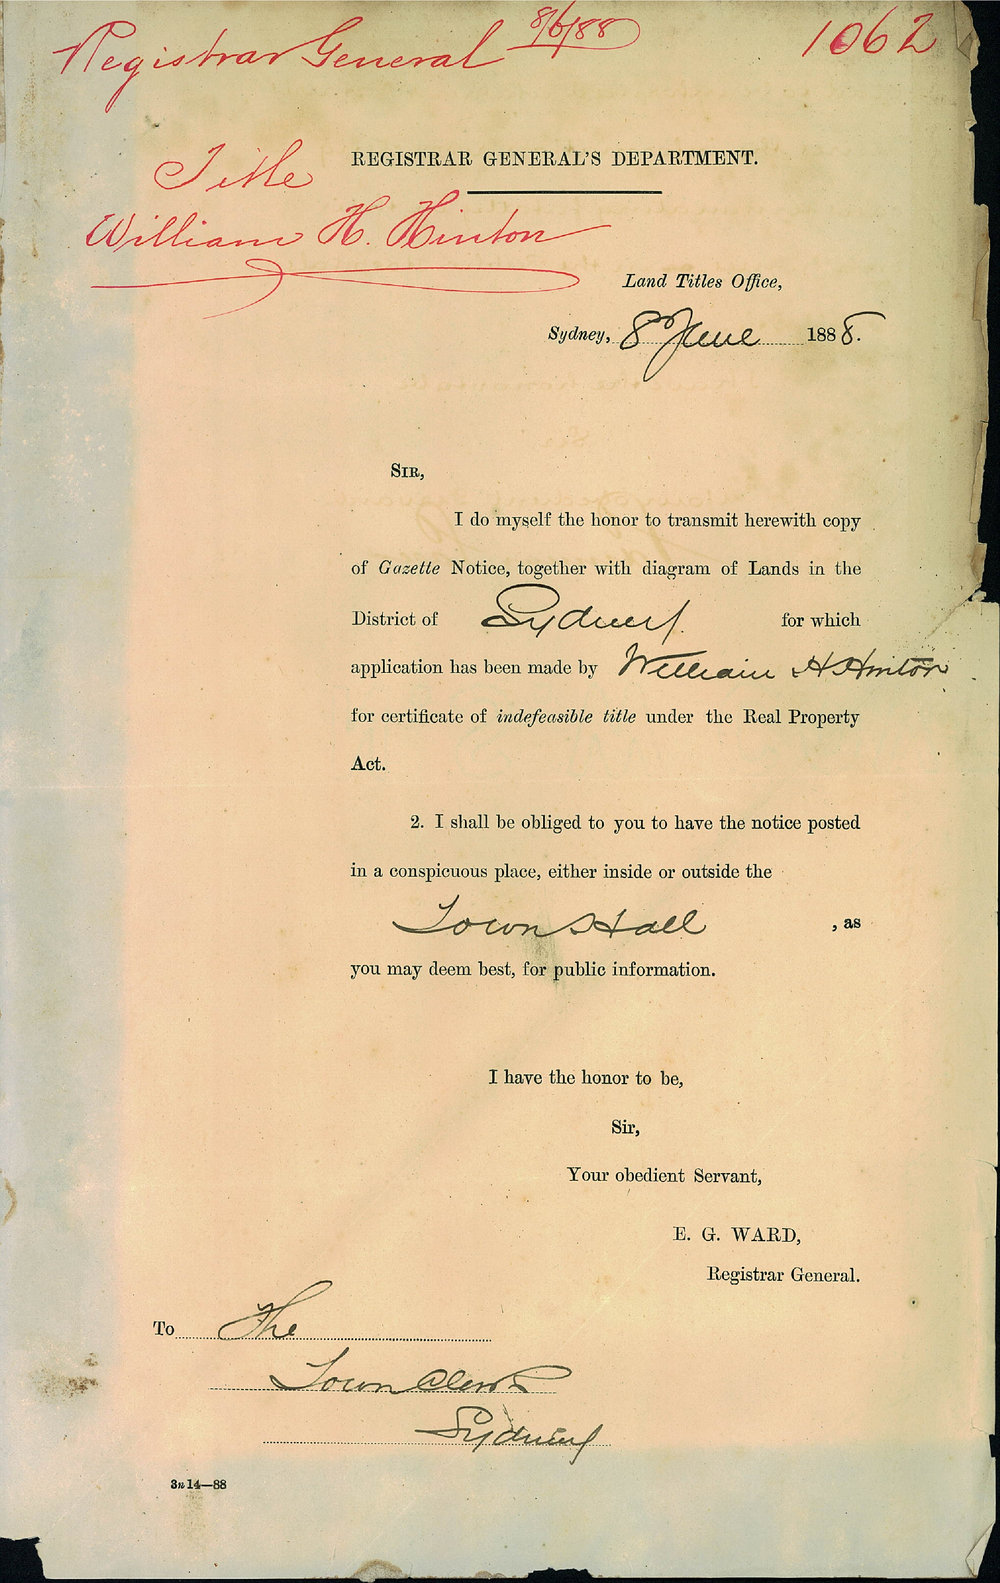 Registrar General 8/6/88 1062
Title
William H. Hinton
REGISTRAR GENERAL'S DEPARTMENT.
Land Titles Office,
Sydney, 8 June 1888.
SIR,
I do myself the honor to transmit herewith copy
of Gazette Notice, together with diagram of Lands in the
District of Sydney. for which
application has been made by William H Hinton
for certificate of indefeasible title under the Real Property
Act.
2. I shall be obliged to you to have the notice posted
in a conspicuous place, either inside or outside the
Town Hall , as
you may deem best, for public information.
I have the honor to be,
Sir,
Your obedient Servant,
E. G. WARD,
Registrar General.
To The
Town Clerk
Sydney
3n14—88